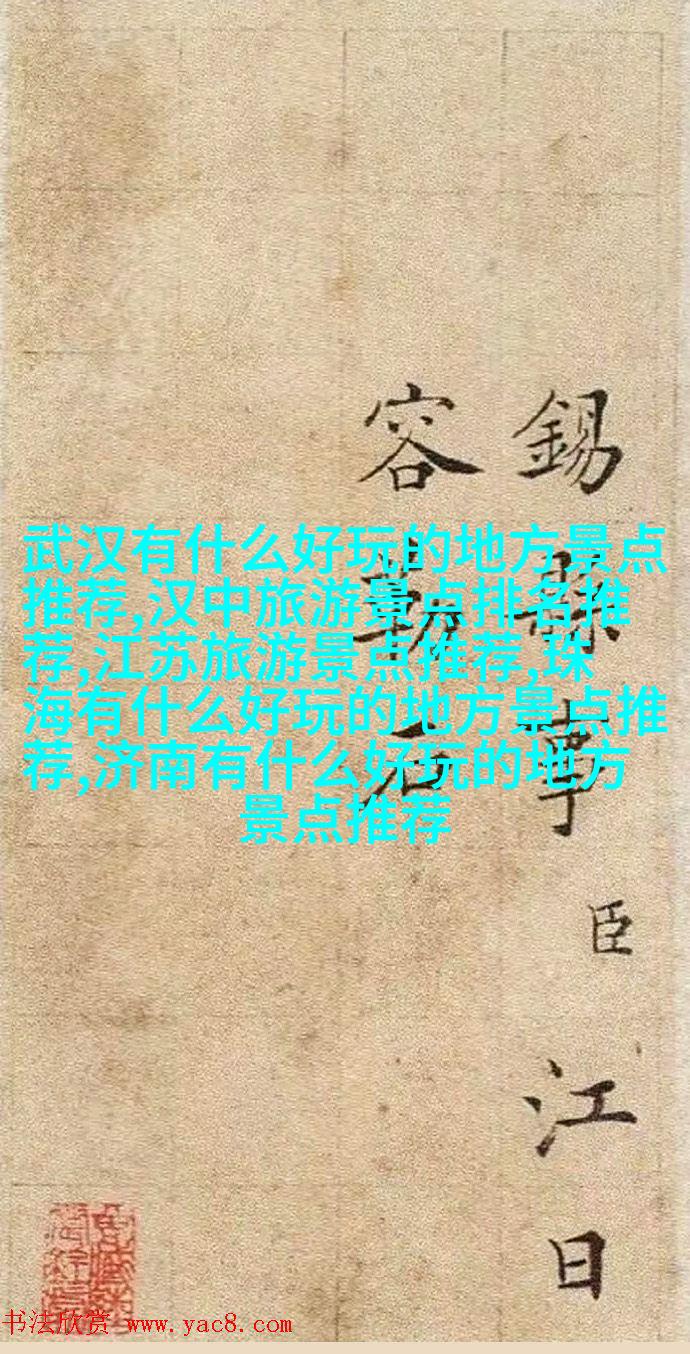 武汉有什么好玩的地方景点
推荐,汉中旅游景点排名推
荐,江苏旅游景点推荐,珠
海有什么好玩的地方景点推
荐,济南有什么好玩的地方
景点推荐
錫縣寧臣江日
容勒石
书法欣赏 www.yac8.com